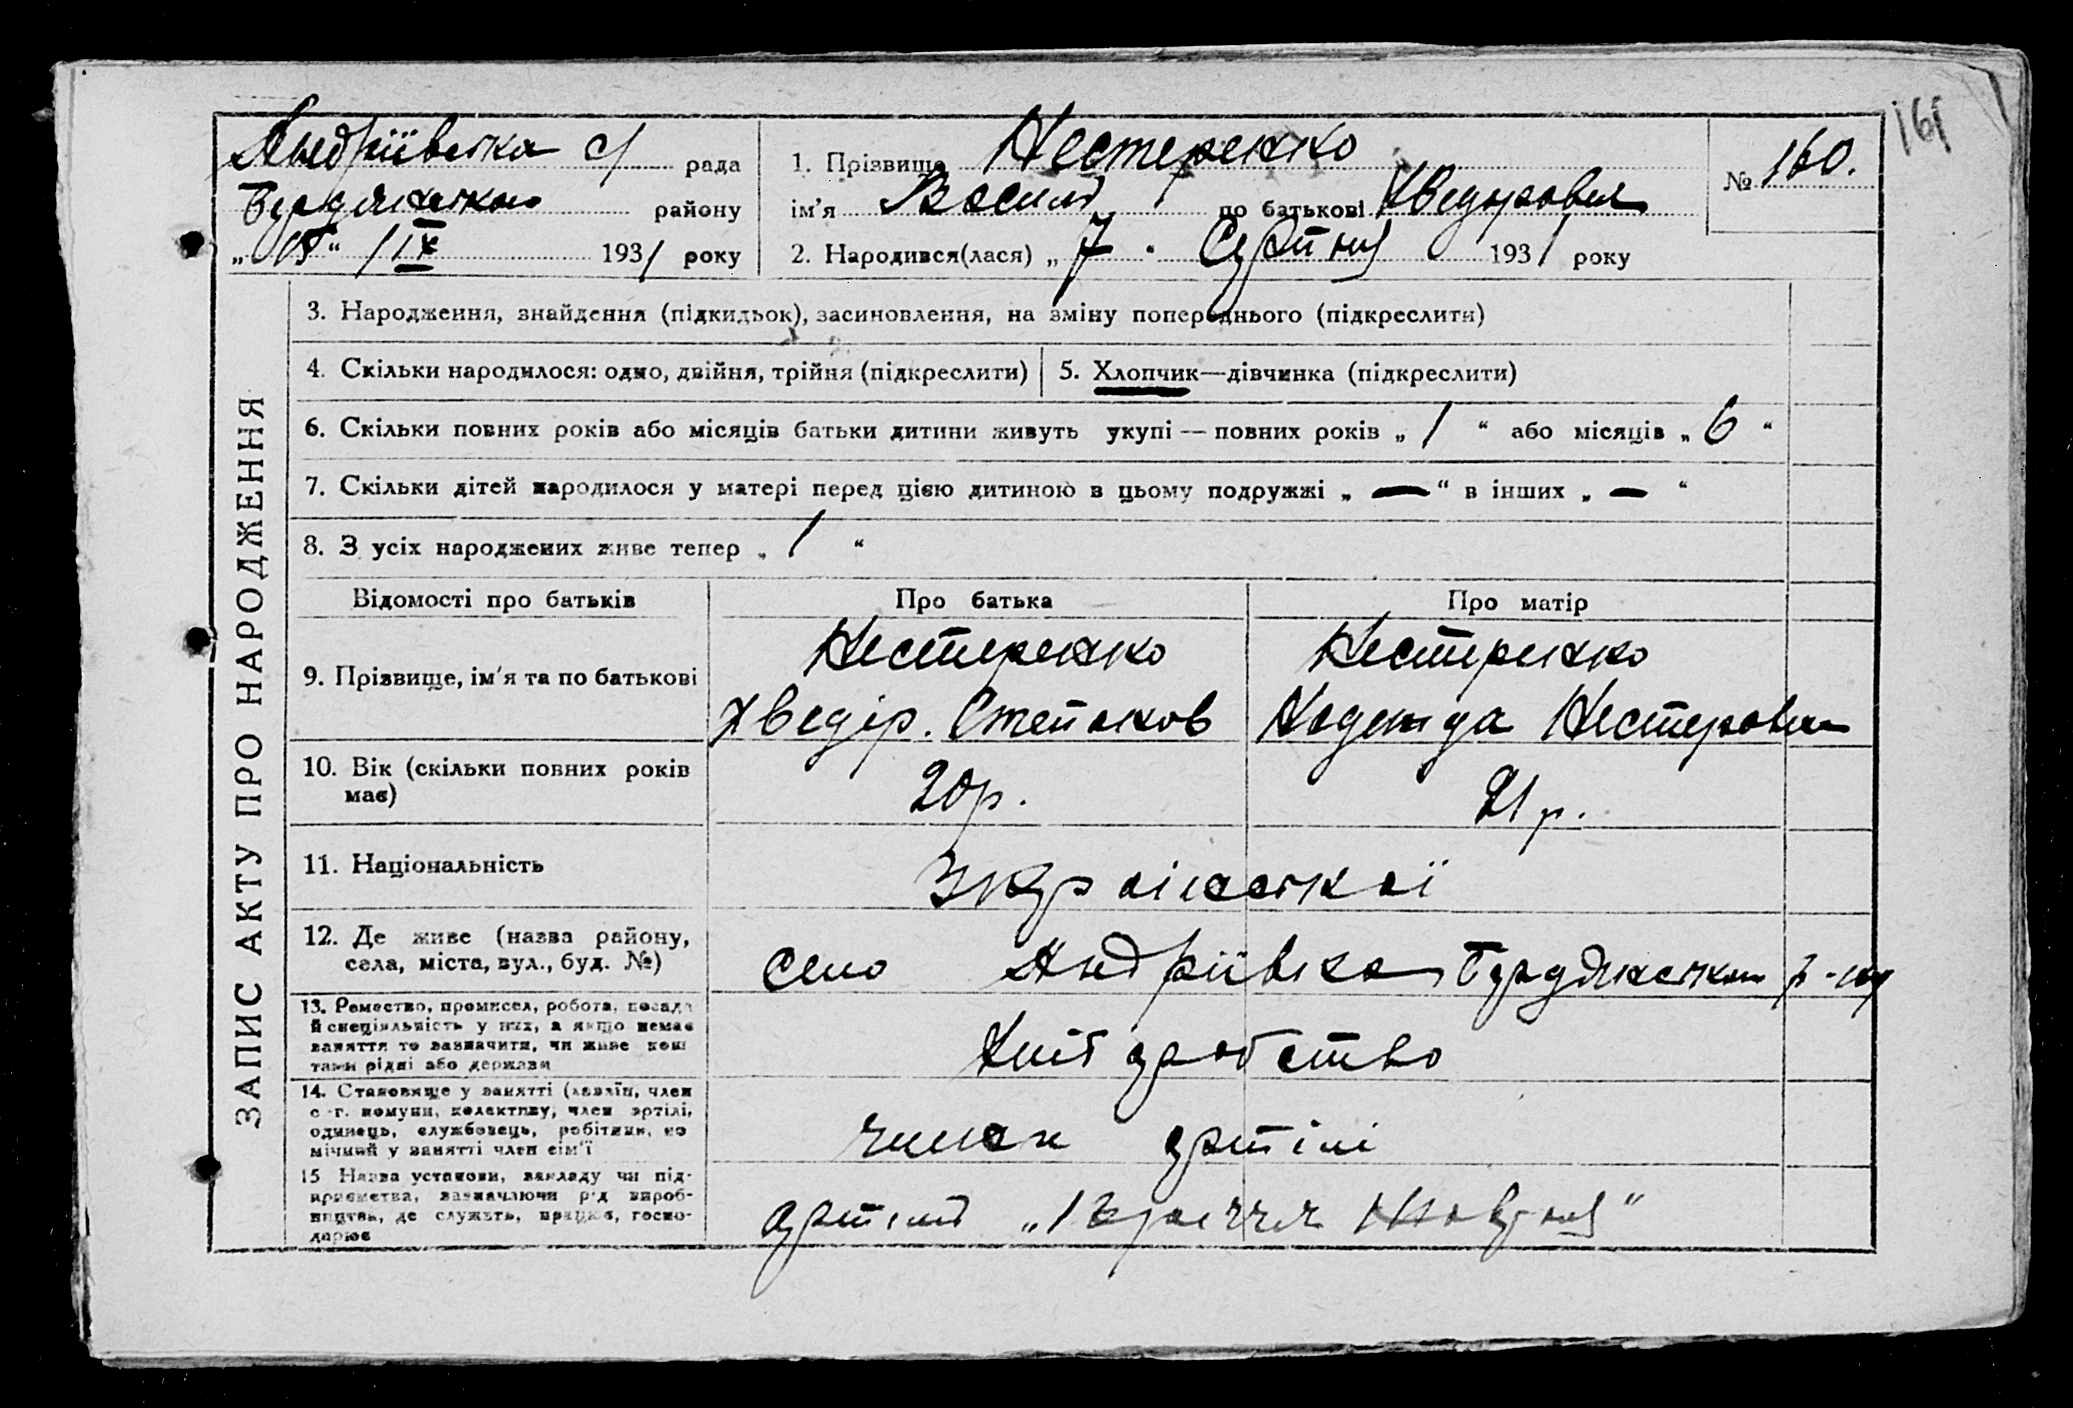 161
Андріївська с/ рада
Бердянського району
" 15 " / IX 1931 року
1. Прізвище Нестеренко
ім'я Василь по батькові Хведорович
2. Народився(лася) „ 7 " Серпня 1931 року
№ 160.
ЗАПИС АКТУ ПРО НАРОДЖЕННЯ
3. Народження, знайдення (підкидьок), засиновлення, на зміну попереднього (підкреслити)
4. Скільки народилося: одно, двійня, трійня (підкреслити)
5. Хлопчик—дівчинка (підкреслити)
6. Скільки повних років або місяців батьки дитини живуть укупі — повних років „ 1 “ або місяців „ 6 “
7. Скільки дітей народилося у матері перед цією дитиною в цьому подружжі „ — “ в інших „ — “
8. З усіх народжених живе тепер „ 1 “
Відомості про батьків Про батька Про матір
9. Прізвище, ім'я та по батькові
Нестеренко
Хведір. Степанов
Нестеренко
Надежда Нестеровна
10. Вік (скільки повних років
має)
20 р.
21 р.
11. Національність
Української
12. Де живе (назва району,
села, міста, вул., буд. №)
село Андріївка Бердянського р-ну
13. Ремество, промисел, робота, посада
й спеціяльність у них, а якщо немає
заняття то зазначити, чи живе кош
тами рідні або держави
Хліборобство
14. Становище у занятті (хазяїн, член
с.-г. комуни, колективу, член артілі,
одинець, службовець, робітник, по
мічний у занятті член сім'ї
член артілі
15 Назва установи, закладу чи під-
приємства, зазначаючи рід вироб-
ництва, де служить, працює, госпо-
дарює
артіль „13 річчя Жовтня"